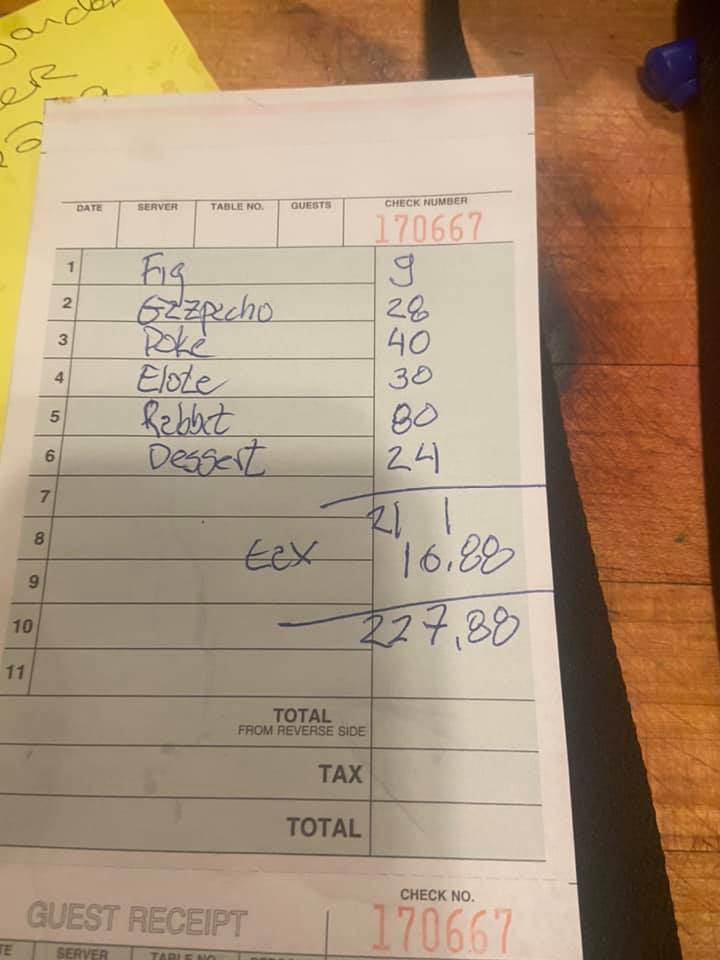 DATE SERVER TABLE NO. GUESTS CHECK NUMBER
170667
1 Fig 9
2 Gazpacho 28
3 Poke 40
4 Elote 30
5 Rabbit 80
6 Dessert 24
7
211
8 tax 16.88
9
10 227.88
11
TOTAL
FROM REVERSE SIDE
TAX
TOTAL
GUEST RECEIPT
CHECK NO.
170667
SERVER TABLE NO.